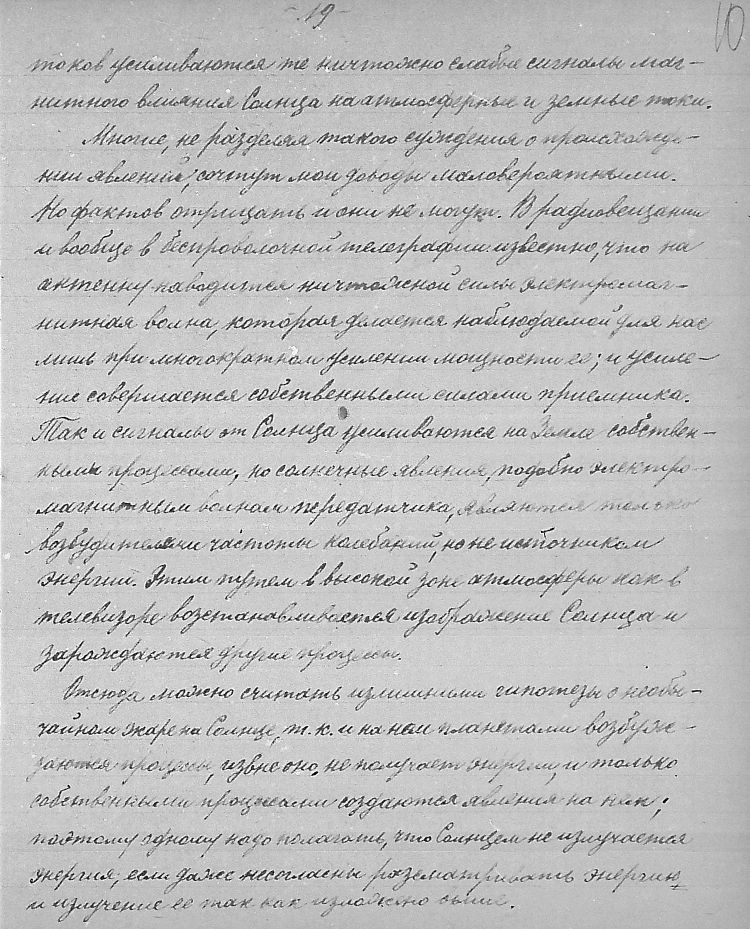 - 19 -
10
токов усиливаются те ничтожно слабые сигналы маг-
нитного влияния Солнца на атмосферные и земные токи.
Многие, не разделяя такого суждения о происхожде-
нии явлений, сочтут мои доводы маловероятными.
Но фактов отрицать и они не могут. В радиовещании
и вообще в беспроволочной телеграфии известно, что на
антенну наводится ничтожной силы электромаг-
нитная волна, которая делается наблюдаемой для нас
лишь при многократном усилении мощности ее; и усиле-
ние совершается собственными силами приемника.
Так и сигналы от Солнца усиливаются на Земле собствен-
ными процессами, но солнечные явления, подобно электро-
магнитным волнам передатчика, являются только
возбудителями частоты колебаний, но не источником
энергии. Этим путем в высокой зоне атмосферы как в
телевизоре возстанавливается изображение Солнца и
зарождаются другие процессы.
Отсюда можно считать излишними гипотезы о необы-
чайном жаре на Солнце, т.к. и на нем планетами возбуж-
даются процессы, извне оно, не получает энергии, и только
собственными процессами создаются явления на нем;
поэтому одному надо полагать, что Солнцем не излучается
энергия, если даже несогласны разсматривать энергию
и излучение ее так как изложено выше.